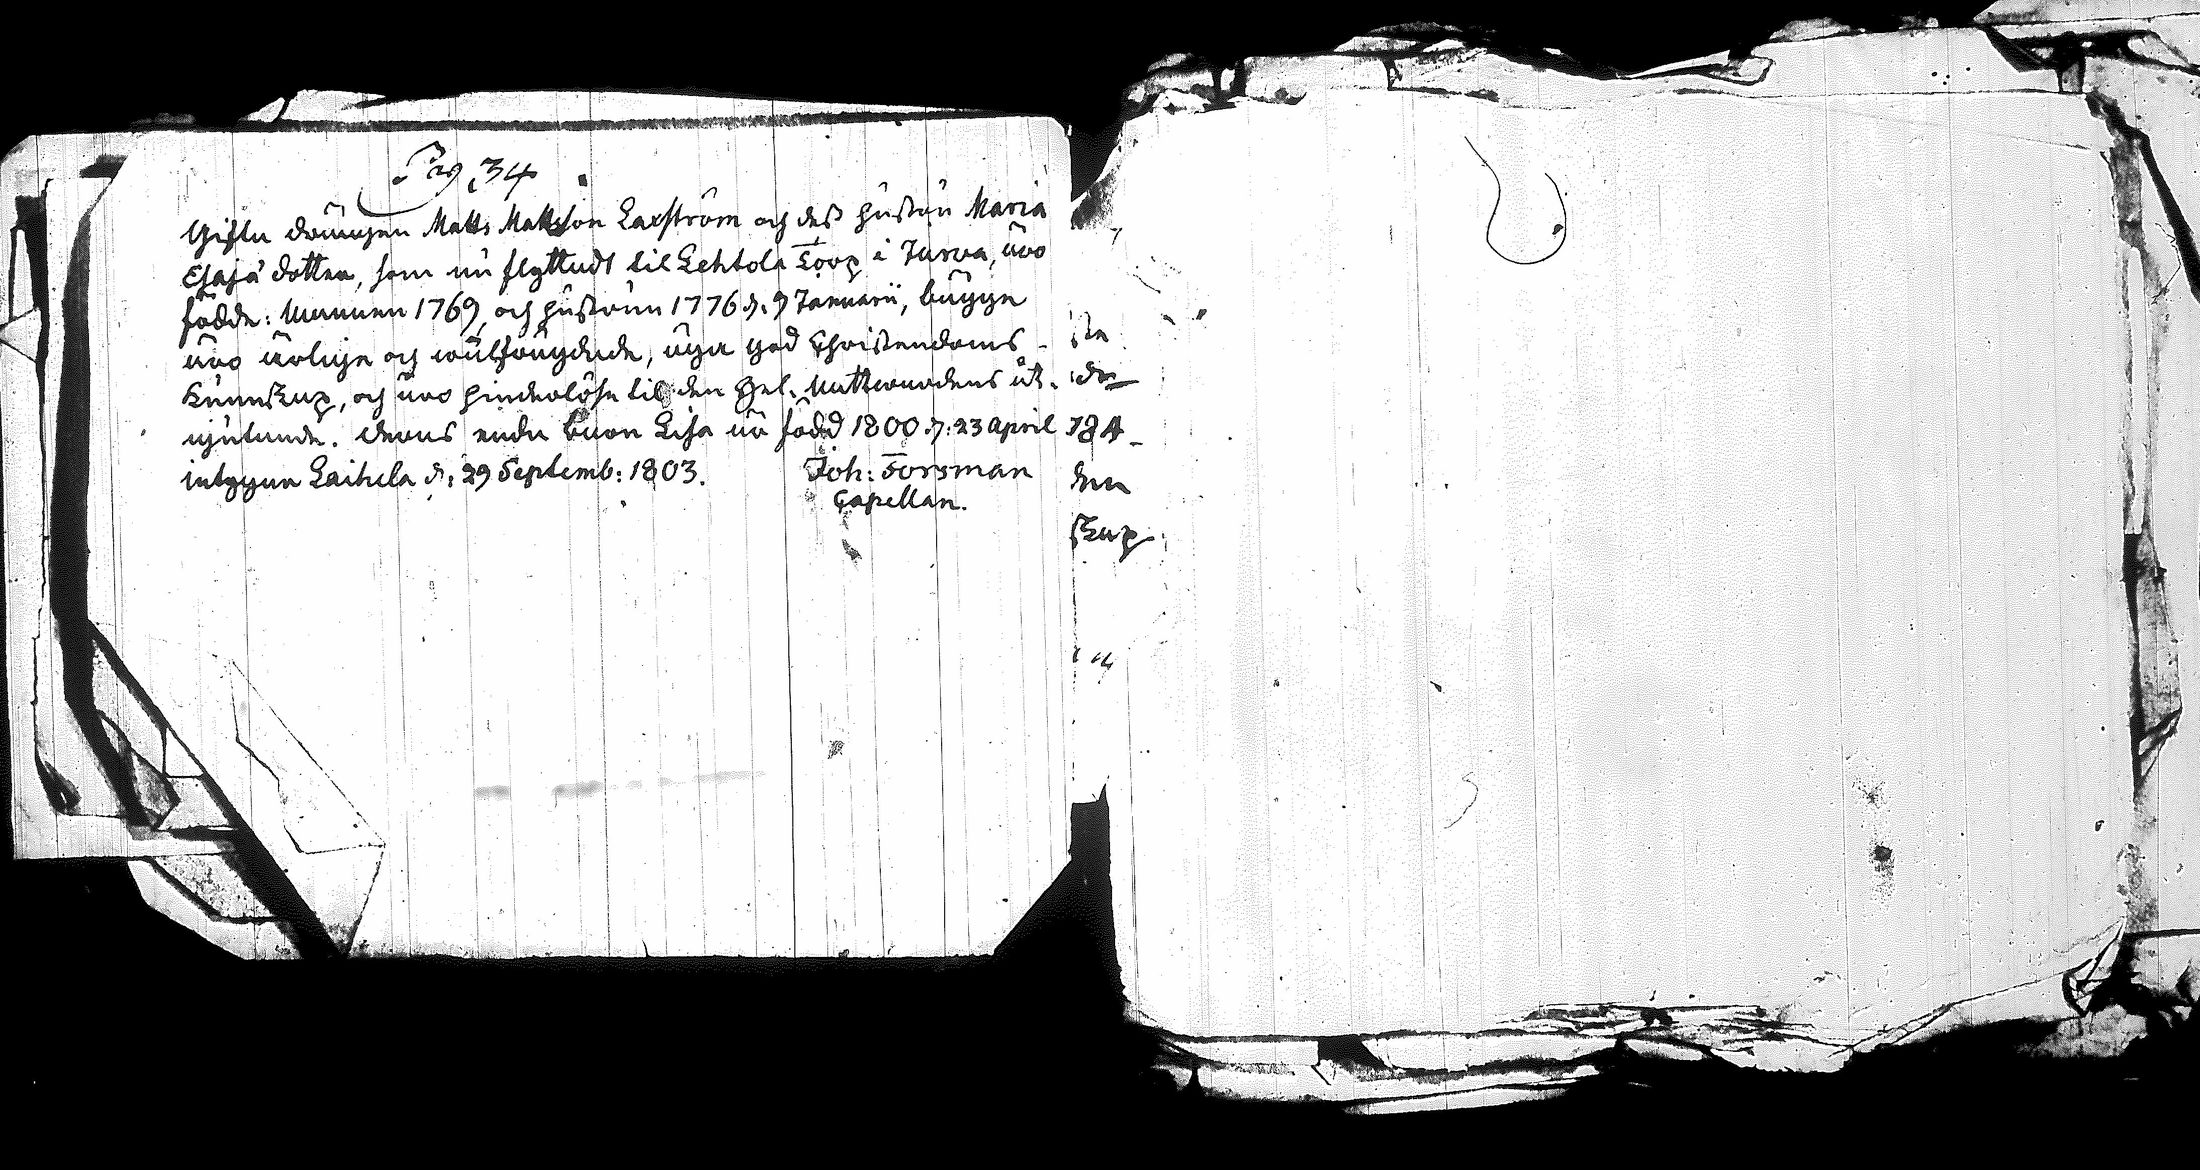 Pag 34
Gifta drängen Matts Mattsson Laxström och dess hustru Maria
Esajæ dotter, som nu flyttadt til Lehtola Torp i Jurva, äro
födde: Mannen 1769, och hustrun 1776 d. 9 Januarii, begge
äro ärlige och wälfrägdade, äga god Christendoms
Kunskap, och äro hinderlöse til den Hel. Nattwardens åt-
njutande. Deras enda barn Lisa är född 1800 d: 23 April
intygar Laihela d: 29 Septemb: 1803. Joh: Forsman
Capellan.
784
den
skap